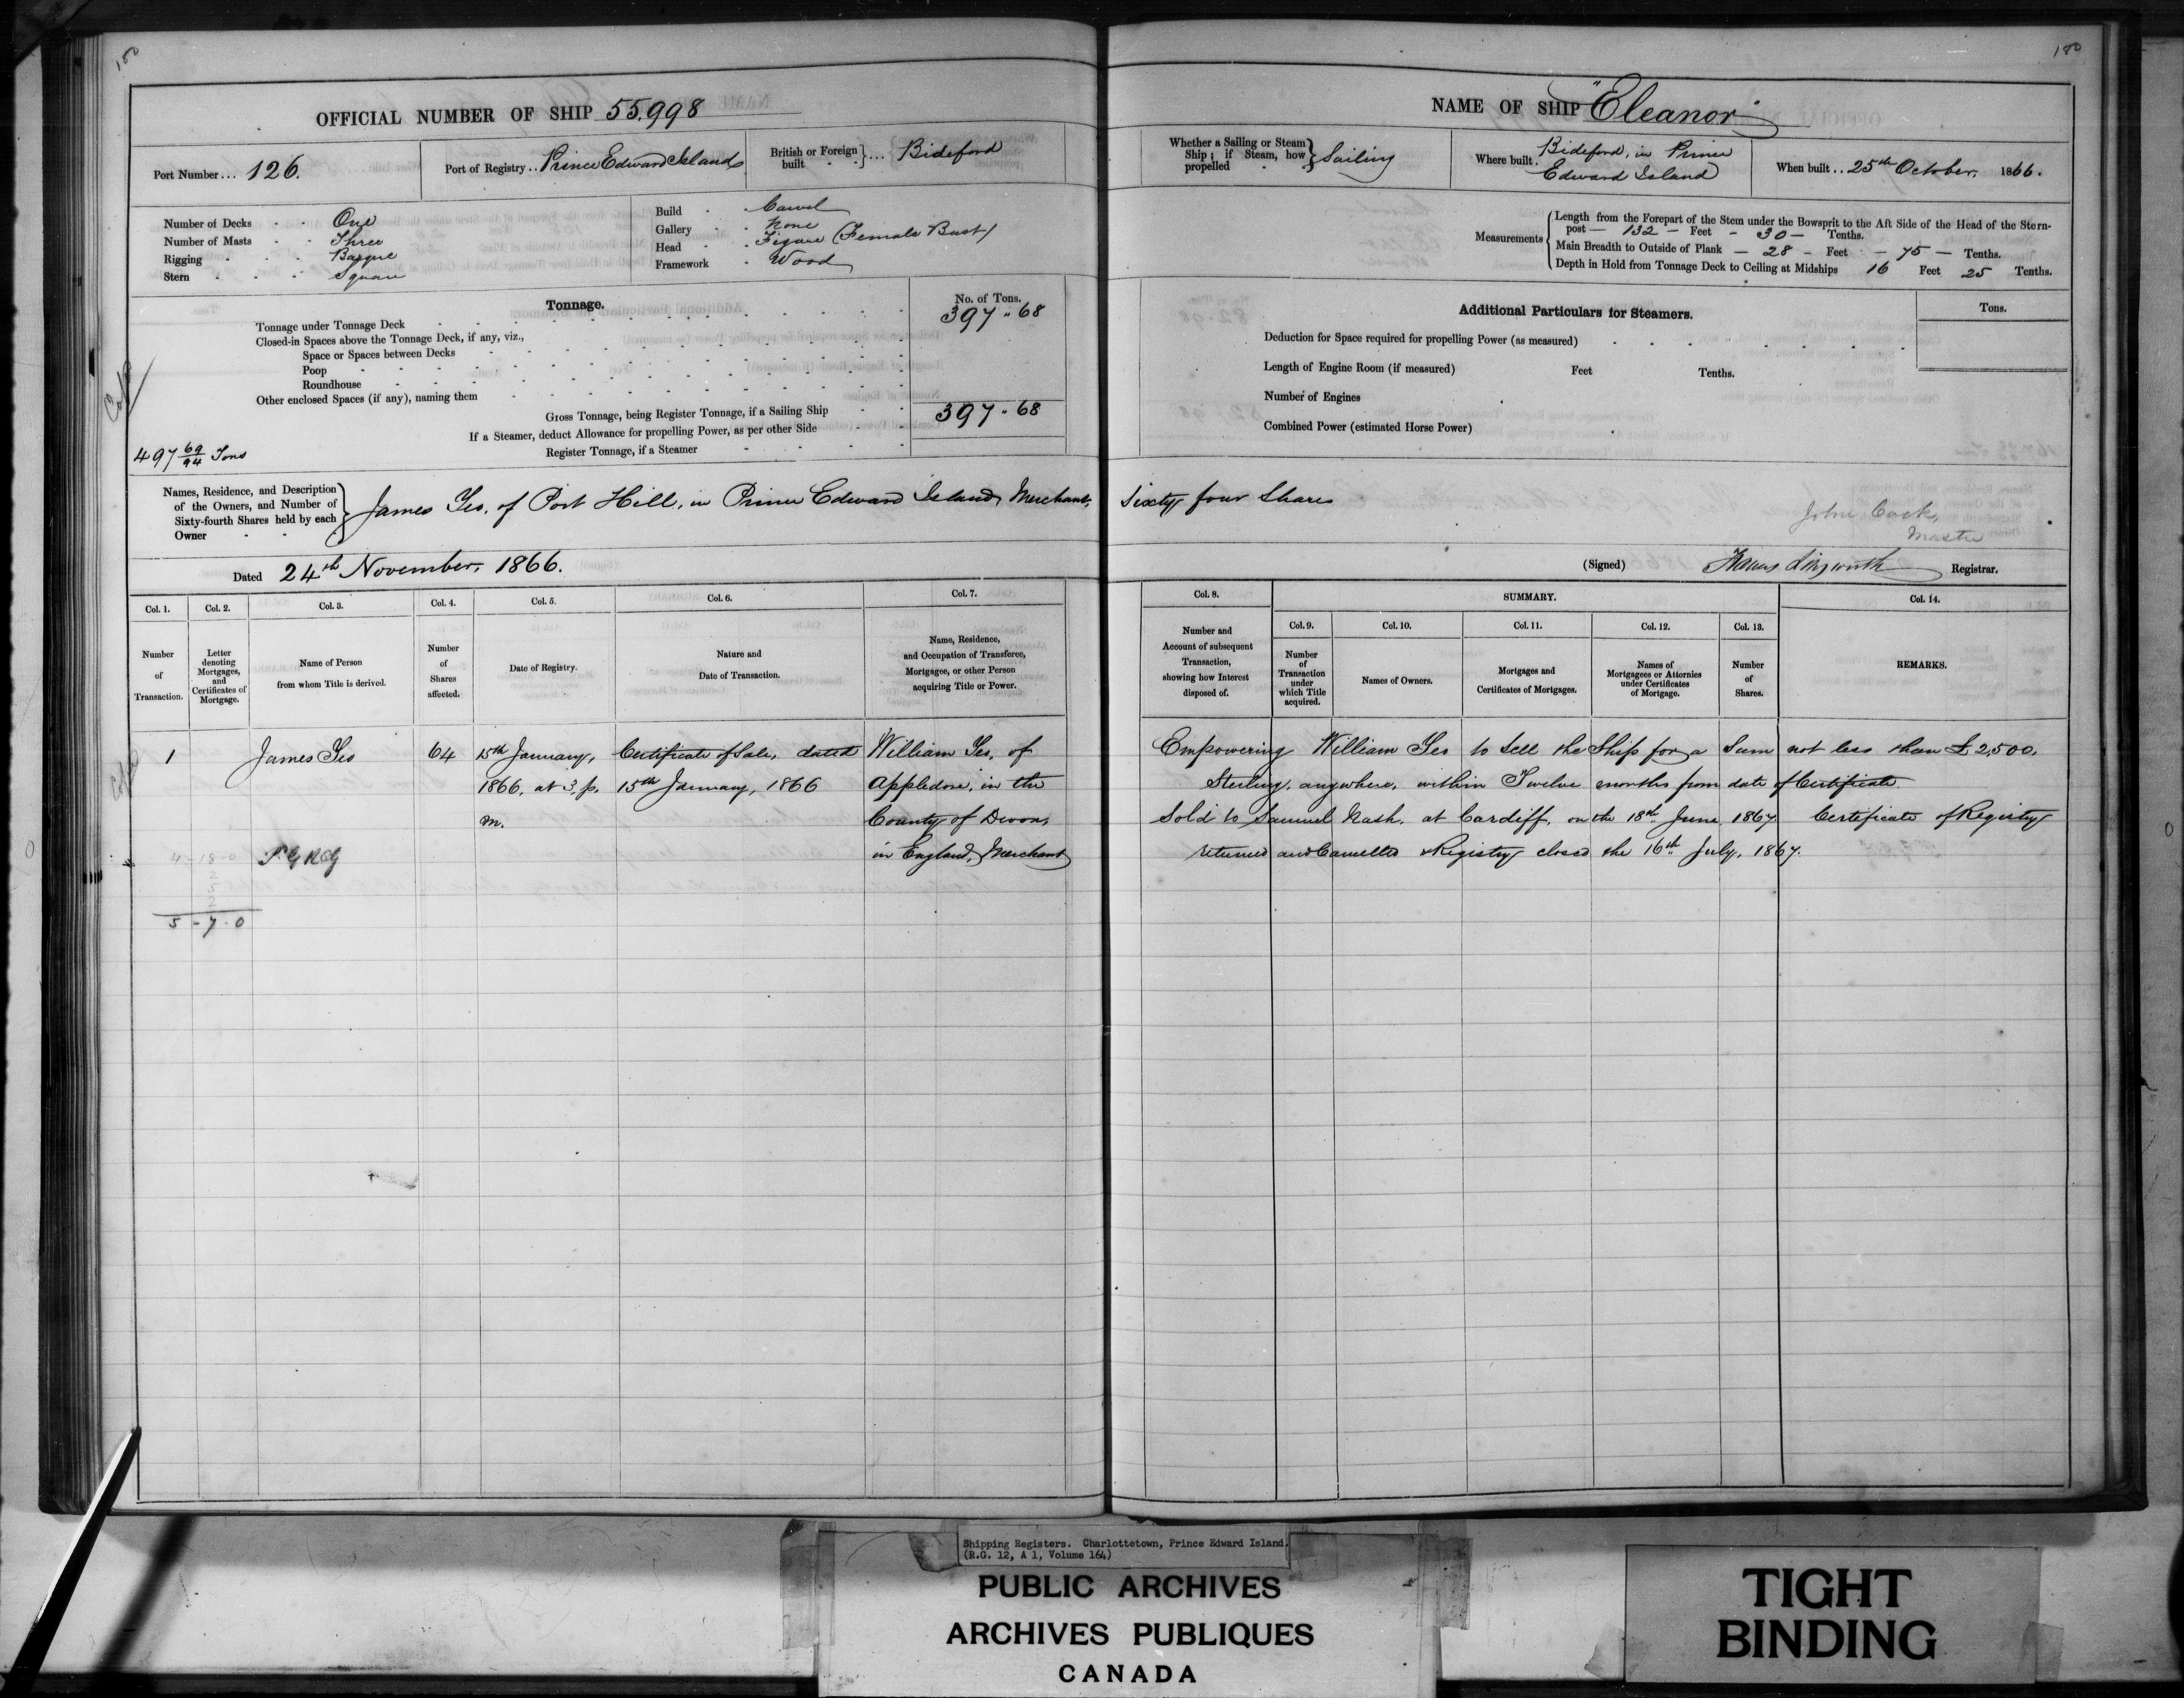 180
180
OFFICIAL NUMBER OF SHIP 55,998
Port Number... 126.
Port of Registry.. Prince Edward Island
British or Foreign built }... Bideford
Number of Decks - - One
Number of Masts - - Three
Rigging - - - Barque
Stern - - - Square
Build - - Carvel
Gallery - - None
Head - - Figure (Female Bust)
Framework - Wood
Tonnage.
No. of Tons.
Tonnage under Tonnage Deck 397 " 68
Closed-in Spaces above the Tonnage Deck, if any, viz.,
Space or Spaces between Decks
Poop
Roundhouse
Other enclosed Spaces (if any), naming them
Gross Tonnage, being Register Tonnage, if a Sailing Ship 397 " 68
If a Steamer, deduct Allowance for propelling Power, as per other Side
Register Tonnage, if a Steamer
497 69/94 Tons
NAME OF SHIP "Eleanor"
Whether a Sailing or Steam Ship; if Steam, how propelled } Sailing
Where built. Bideford, in Prince
Edward Island
When built.. 25th October, 1866.
Measurements
Length from the Forepart of the Stem under the Bowsprit to the Aft Side of the Head of the Stern-
post — 132 — Feet - 30 — Tenths.
Main Breadth to Outside of Plank — 28 - Feet — 75 — Tenths.
Depth in Hold from Tonnage Deck to Ceiling at Midships 16 Feet 25 Tenths.
Additional Particulars for Steamers.
Tons.
Deduction for Space required for propelling Power (as measured)
Length of Engine Room (if measured) Feet Tenths.
Number of Engines
Combined Power (estimated Horse Power)
Names, Residence, and Description
of the Owners, and Number of
Sixty-fourth Shares held by each
Owner
James Yeo, of Port Hill, in Prince Edward Island, Merchant, Sixty four Shares
John Cock,
Master
Dated 24th November, 1866.
(Signed) Registrar.
Col. 1.
Number of Transaction.
Col. 2.
Letter denoting Mortgages, and Certificates of Mortgage.
Col. 3.
Name of Person from whom Title is derived.
Col. 4.
Number of Shares affected.
Col. 5.
Date of Registry.
Col. 6.
Nature and Date of Transaction.
Col. 7.
Name, Residence, and Occupation of Transferee, Mortgagee, or other Person acquiring Title or Power.
Col. 8.
Number and Account of subsequent Transaction, showing how Interest disposed of.
SUMMARY.
Col. 9.
Number of Transaction under which Title acquired.
Col. 10.
Names of Owners.
Col. 11.
Mortgages and Certificates of Mortgages.
Col. 12.
Names of Mortgagees or Attornies under Certificates of Mortgage.
Col. 13.
Number of Shares.
Col. 14.
REMARKS.
1 James Yeo 64 15th January, Certificate of Sale, dated William Yeo, of
1866, at 3, p. 15th January, 1866 Appledore, in the
m. County of Devon,
in England, Merchant
4 - 18 - 0
2
5
2
5 - 7 - 0
Empowering William Yeo to sell the Ship for a Sum not less than £2,500,
Sterling, anywhere, within Twelve months from date of Certificate.
Sold to Samuel Nash, at Cardiff, on the 18th June 1867 Certificate of Registry
returned and Cancelled & Registry closed the 16th July, 1867.
Shipping Registers. Charlottetown, Prince Edward Island.
(R.G. 12, A 1, Volume 164)
PUBLIC ARCHIVES
ARCHIVES PUBLIQUES
CANADA
TIGHT
BINDING